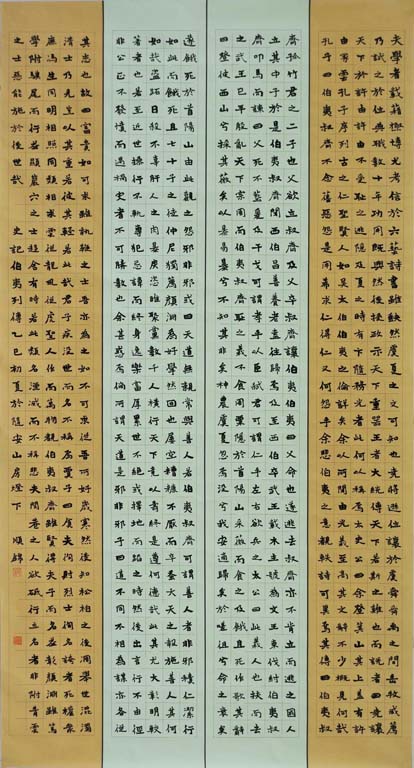 夫學者載籍極博尤考信於六藝詩書雖缺然虞夏之文可知也堯將遜位讓於虞舜舜禹之間岳牧咸薦
乃試之於位典職數十年功用既興然後授政示天下重器王者大統傳天下若斯之難也而說者曰堯讓
天下於許由許由不受恥之逃隱及夏之時有卞隨務光者此何以稱焉太史公曰余登箕山其上蓋有許
由冢云孔子序列古之仁聖賢人如吳太伯伯夷之倫詳矣余以所聞由光義至高其文辭不少概見何哉
孔子曰伯夷叔齊不念舊惡怨是用希求仁得仁又何怨乎余悲伯夷之意睹軼詩可異焉其傳曰伯夷叔
齊孤竹君之二子也父欲立叔齊及父卒叔齊讓伯夷伯夷曰父命也遂逃去叔齊亦不肯立而逃之國人
立其中子於是伯夷叔齊聞西伯昌善養老盍往歸焉及至西伯卒武王載木主號為文王東伐紂伯夷叔
齊叩馬而諫曰父死不葬爰及干戈可謂孝乎以臣弒君可謂仁乎左右欲兵之太公曰此義人也扶而去
之武王已平殷亂天下宗周而伯夷叔齊恥之義不食周粟隱於首陽山采薇而食之及餓且死作歌其辭
曰登彼西山兮采其薇矣以暴易暴兮不知其非矣神農虞夏忽焉沒兮我安適歸矣于嗟徂兮命之衰矣
遂餓死於首陽山由此觀之怨邪非邪或曰天道無親常與善人若伯夷叔齊可謂善人者非邪積仁潔行
如此而餓死且七十子之徒仲尼獨薦顏淵為好學然回也屢空糟糠不厭而卒蚤夭天之報施善人其何
如哉盜蹠日殺不辜肝人之肉暴戾恣睢聚黨數千人橫行天下竟以壽終是遵何德哉此其尤大彰明較
著者也若至近世操行不軌專犯忌諱而終身逸樂富厚累世不絕或擇地而蹈之時然後出言行不由徑
非公正不發憤而遇禍災者不可勝數也余甚惑焉儻所謂天道是邪非邪子曰道不同不相為謀亦各從
其志也故曰富貴如可求雖執鞭之士吾亦為之如不可求從吾所好歲寒然後知松柏之後凋舉世混濁
清士乃見豈以其重若彼其輕若此哉君子疾沒世而名不稱焉賈子曰貪夫徇財烈士徇名誇者死權眾
庶馮生同明相照同類相求雲從龍風從虎聖人作而萬物睹伯夷叔齊雖賢得夫子而名益彰顏淵雖篤
學附驥尾而行益顯巖穴之士趨舍有時若此類名湮滅而不稱悲夫閭巷之人欲砥行立名者非附青雲
之士惡能施於後世哉 史記伯夷列傳 乙巳初夏於隨安山房燈下 順錦